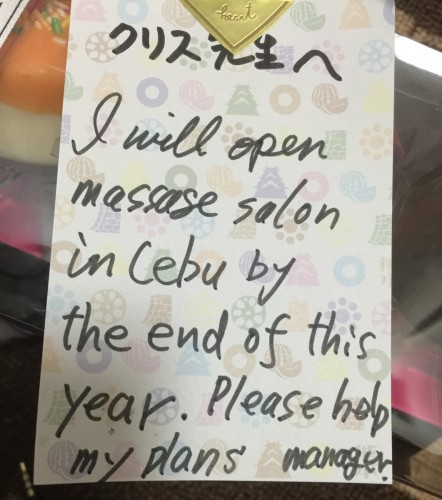 heart
クリス先生へ
I will open
massase salon
in Cebu by
the end of this
year. Please help
my plans manager.